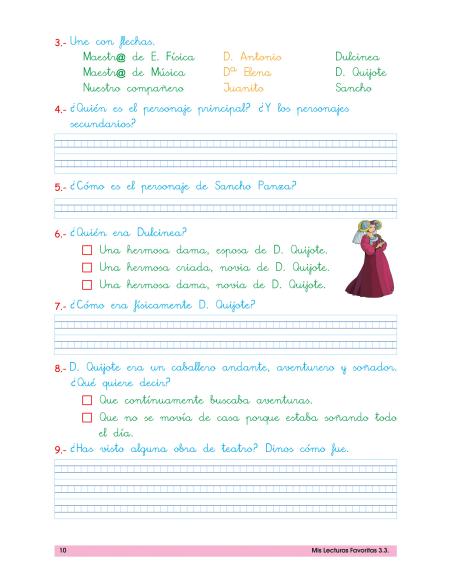 3.- Une con flechas.
Maestr@ de E. Física D. Antonio Dulcinea
Maestr@ de Música Dª Elena D. Quijote
Nuestro compañero Juanito Sancho
4.- ¿Quién es el personaje principal? ¿Y los personajes
secundarios?
5.- ¿Cómo es el personaje de Sancho Panza?
6.- ¿Quién era Dulcinea?
Una hermosa dama, esposa de D. Quijote.
Una hermosa criada, novia de D. Quijote.
Una hermosa dama, novia de D. Quijote.
7.- ¿Cómo era físicamente D. Quijote?
8.- D. Quijote era un caballero andante, aventurero y soñador.
¿Qué quiere decir?
Que contínuamente buscaba aventuras.
Que no se movía de casa porque estaba soñando todo
el día.
9.- ¿Has visto alguna obra de teatro? Dinos cómo fue.
10 Mis Lecturas Favoritas 3.3.